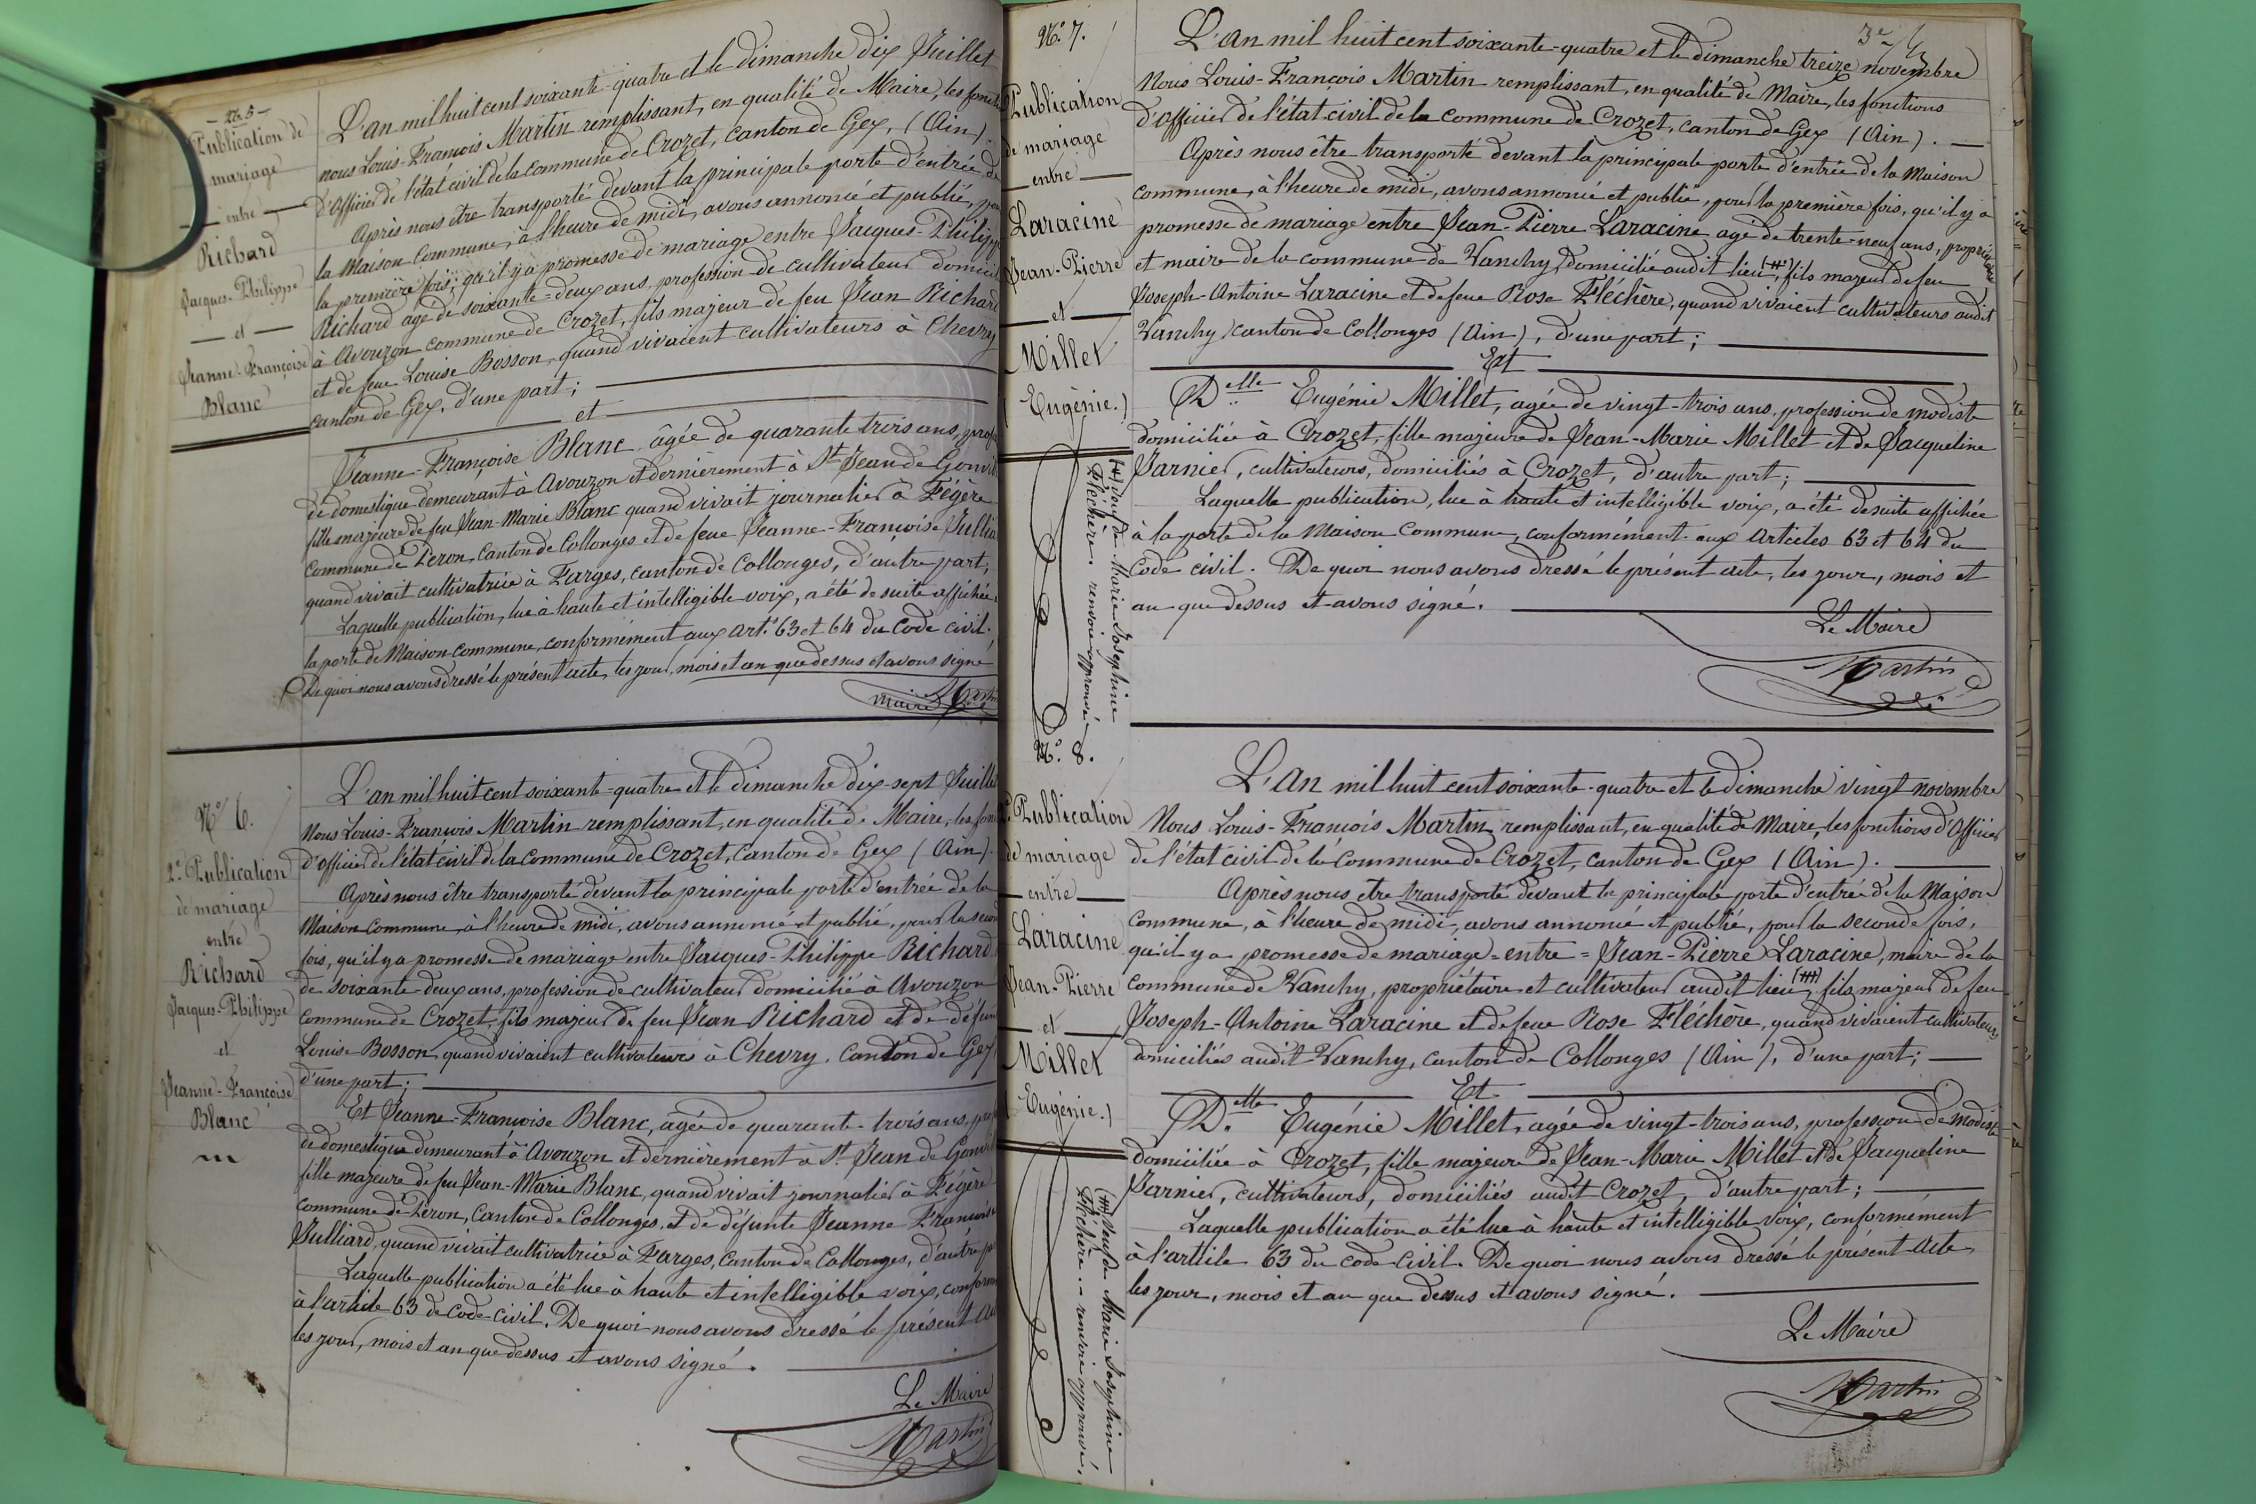 - N.o 5 -
Publication de
mariage
entre
Richard
Jacques-Philippe
et
Jeanne-Françoise
Blanc
L'an mil huit cent soixante-quatre et le dimanche dix Juillet
nous Louis-François Martin remplissant, en qualité de Maire, les foncti
d'Officier de l'état civil de la commune de Crozet, canton de Gex, (Ain).
Après nous être transporté devant la principale porte d'entrée de
la Maison Commune, à l'heure de midi, avons annoncé et publié, pour
la première fois, qu'il y a promesse de mariage entre Jacques-Philippe
Richard agé de soixante-deux ans, profession de cultivateur domicil
à Avouzon commune de Crozet, fils majeur de feu Jean Richard
et de feue Louise Bosson, quand vivaient cultivateurs à Chevry
canton de Gex, d'une part;
et
Jeanne-Françoise Blanc âgée de quarante trois ans, prof
de domestique demeurant à Avouzon et dernièrement à St Jean de Gonvil
fille majeure de feu Jean-Marie Blanc quand vivait journalier à Fégère
commune de Péron, Canton de Collonges et de feue Jeanne-Françoise Jullia
quand vivait cultivatrice à Farges, canton de Collonges, d'autre part;
Laquelle publication, lue à haute et intelligible voix, a été de suite affichée
la porte de Maison commune, conformément aux arts 63 et 64 du Code civil.
De quoi nous avons dressé le présent acte, les jour, mois et an que dessus et avons signé
Maire Martin
No 6.
2e Publication
de mariage
entre
Richard
Jacques-Philippe
et
Jeanne-Françoise
Blanc
L'an mil huit cent soixante-quatre et le dimanche dix-sept Juillet
Nous Louis-François Martin remplissant, en qualité de Maire, les fonc
d'officier de l'état civil de la Commune de Crozet, canton de Gex (Ain).
Après nous être transporté devant la principale porte d'entrée de la
Maison Commune, à l'heure de midi, avons annoncé et publié, pour la secon
fois, qu'il y a promesse de mariage entre Jacques-Philippe Richard
de soixante deux ans, profession de cultivateur domicilié à Avouzon
commune de Crozet, fils majeur de feu Jean Richard et de défun
Louise Bosson, quand vivaient cultivateurs à Chevry, Canton de Gex
d'une part;
Et Jeanne-Françoise Blanc, agée de quarante-trois ans, prof
de domestique demeurant à Avouzon et dernièrement à St Jean de Gonvil
fille majeure de feu Jean-Marie Blanc, quand vivait journalier à Fégère
commune de Péron, Canton de Collonges, et de défunte Jeanne Françoise
Julliard, quand vivait cultivatrice à Farges, Canton de Collonges, d'autre p
Laquelle publication a été lue à haute et intelligible voix, conform
à l'article 63 de Code civil. De quoi nous avons dressé le présent Ac
les jour, mois et an que dessus et avons signé.
Le Maire
Martin
No 7.
Publication
de mariage
entre
Laracine
Jean-Pierre
et
Millet
(Eugénie.)
(#) veuf de Marie Josephine
Fléchère. renvoi approuvé
3e
L'an mil huit cent soixante-quatre et le dimanche treize novembre
Nous Louis-François Martin remplissant, en qualité de Maire, les fonctions
d'officier de l'état civil de la commune de Crozet, canton de Gex (Ain).
Après nous être transporté devant la principale porte d'entrée de la Maison
commune, à l'heure de midi, avons annoncé et publié, pour la première fois, qu'il y a
promesse de mariage entre Jean-Pierre Laracine agé de trente-neuf ans, propriétaire
et maire de la commune de Vanchy, domicilié audit lieu (#), fils majeur de feu
Joseph-Antoine Laracine et de feue Rose Fléchère, quand vivaient cultivateurs audit
Vanchy, canton de Collonges (Ain), d'une part;
Et
Delle Eugénie Millet, agée de vingt-trois ans, profession de modiste
domiciliée à Crozet, fille majeure de Jean-Marie Millet et de Jacqueline
Jarnier, cultivateurs, domiciliés à Crozet, d'autre part;
Laquelle publication, lue à haute et intelligible voix, a été de suite affichée
à la porte de la Maison Commune, conformément aux Articles 63 et 64 du
Code civil. De quoi nous avons dressé le présent acte, les jour, mois et
an que dessus et avons signé.
Le Maire
Martin
No 8.
2e Publication
de mariage
entre
Laracine
Jean-Pierre
et
Millet
(Eugénie.)
(##) Veuf de Marie Josephine
Fléchère. - renvoi approuvé.
L'An mil huit cent soixante-quatre et le dimanche vingt novembre
Nous Louis-François Martin, remplissant, en qualité de Maire, les fonctions d'Officier
de l'état civil de la Commune de Crozet, canton de Gex (Ain).
Après nous être transporté devant la principale porte d'entrée de la Maison
Commune, à l'heure de midi, avons annoncé et publié, pour la seconde fois,
qu'il y a promesse de mariage = entre = Jean-Pierre Laracine, maire de la
Commune de Vanchy, propriétaire et cultivateur audit lieu (##), fils majeur de feu
Joseph-Antoine Laracine et de feue Rose Fléchère, quand vivaient cultivateurs
domiciliés audit Vanchy, canton de Collonges (Ain), d'une part;
Et
Delle Eugénie Millet, agée de vingt-trois ans, profession de modiste
domiciliée à Crozet, fille majeure de Jean-Marie Millet et de Jacqueline
Jarnier, cultivateurs, domiciliés audit Crozet, d'autre part;
Laquelle publication a été lue à haute et intelligible voix, conformément
à l'article 63 du code civil. De quoi nous avons dressé le présent Acte
les jour, mois et an que dessus et avons signé.
Le Maire
Martin